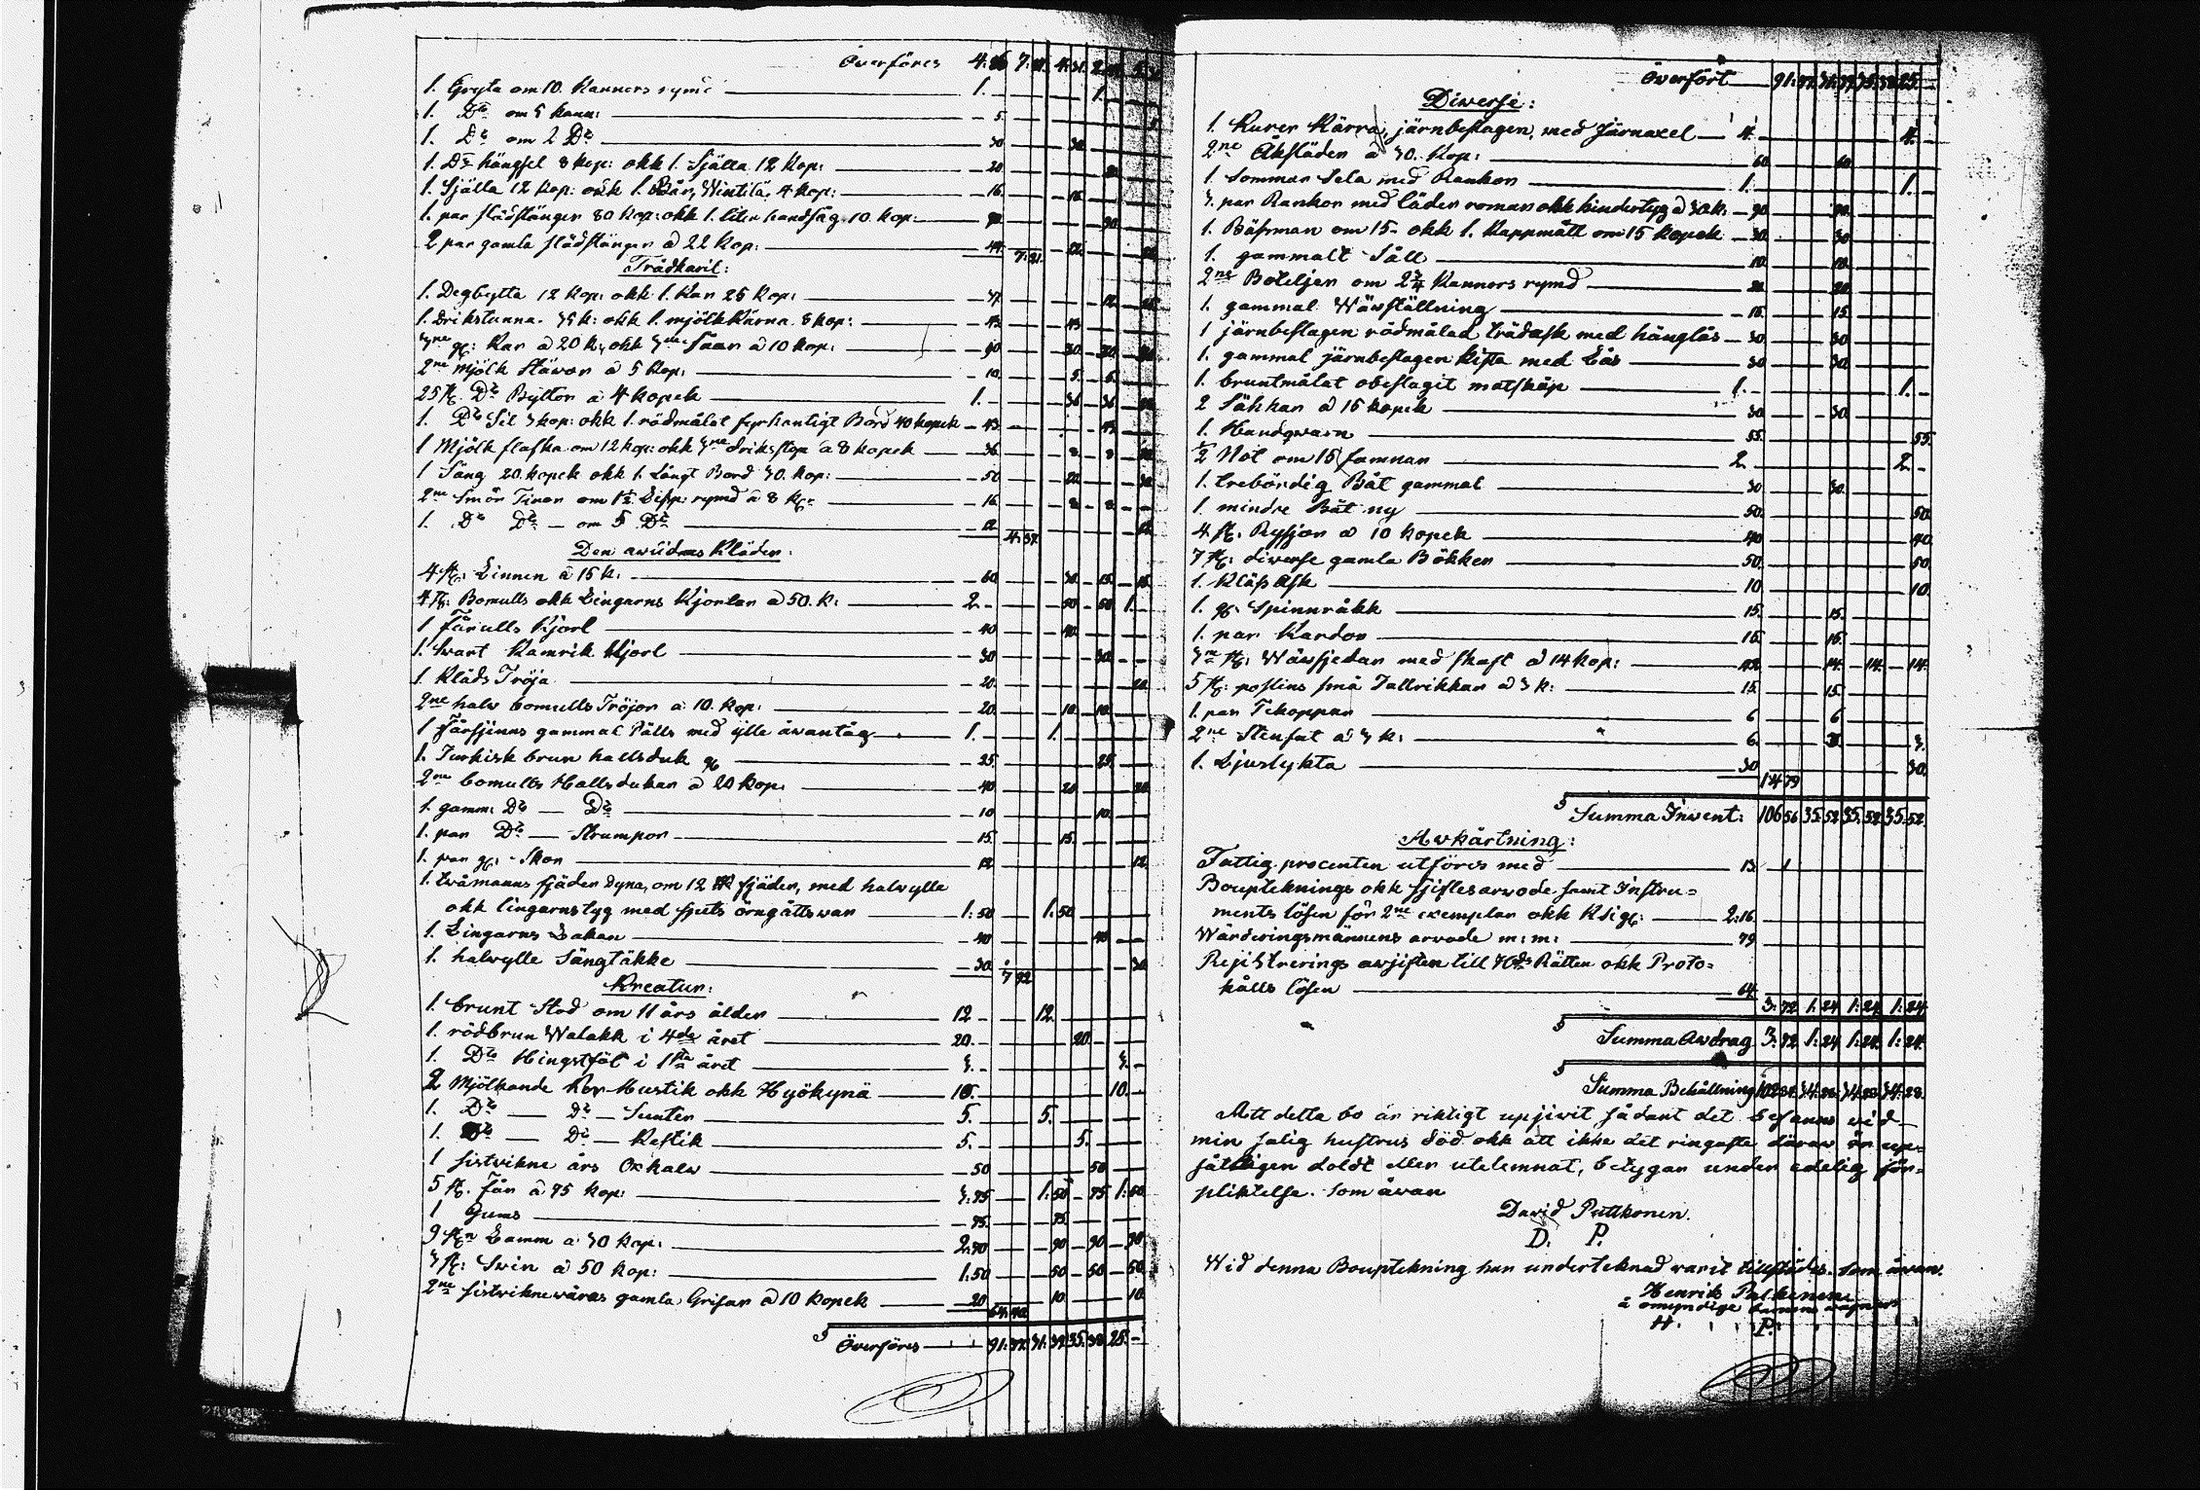 Överföres 4: 7: 4: 2:
1. Gryta om 10. Kannors rymd — 1. — 1.
1. D:o om 5 kann: — 5. 5
1. D:o om 2 D:o — 30 30.
1. D:o hängsel 8 kop: okk 1. Själla 12 kop: — 20
1. Själla 12 kop: okk 1. 4 kop: — 16. 16.
1. par slädstänger 80 kop: okk 1. liten handsåg 10. kop: — 90 90.
2 par gamla slädstänger à 22 kop: — 44. 7: 22. 22
Trädkaril:
1. Degbytta 12 kop: okk 1. Kar 25 kop: — 37 12. 25
1. Drikstunna 35 k: okk 1. mjölk Kärna 8 kop: — 43. 43
3ne gl: Kar à 20 k: okk 3ne Såar à 10 kop: — 90 30. 30.
2ne mjölk Stäwor à 5 kop: — 10. 5. 5.
25 st. D:o Byttor à 4 kopek — 1. — 36 36
1. D:o Sil 3 kop: okk 1. rödmålat fyrkantigt Bord 40 kopek — 43. 43.
1 Mjölk flaska om 12 kop: okk 3ne drikstop à 8 kopek — 36 8 8
1 Säng 20. kopek okk 1. Långt Bord 30. kop: — 50 20. 30.
2ne Smör Tinor om 1½ Lispp: rymd à 8 kp: — 16 8 8
1. D:o D:o — om 5 D:o — 12 12
Den awlidnas Kläder:
4 st: Linnen à 15 k: — 60 30. 15. 15.
4 st: Bomulls okk Lingarns Kjortlar à 50. k: — 2. — 50 50 1. —
1 Fårulls Kjorl — 40 40.
1. Swart Kamrik Kjorl — 30 30.
1 Kläds Tröja — 20. 20.
2ne halw bomulls Tröjor à 10. kop: — 20 10. 10.
1 Fårsjinns gammal Päls med ylle åwantåg — 1. — 1.
1. Turkisk brun hallsduk — 25. 25.
2ne bomulls Hallsdukar à 20 kop: — 40 20 20
1 gamm: D:o — D:o — 10 10.
1. par D:o — Strumpor — 15. 15.
1. par gl: Skor — 12 12.
1. twåmanns fjäder Dyna, om 12 fjäder, med halwylle
okk lingarnstyg med örngåttswar — 1: 50 1: 50.
1. Lingarns Lakan — 40 40
1. halwylle Sängtäkke — 30. 30.
Kreatur:
1. brunt Stod om 11 års ålder — 12 — 12.
1. rödbrun Walakk i 4de året — 20. — 20.
1. D:o Hingstföl i 1sta året — 3. — 3. —
2 Mjölkande Kor Mustik okk Hyökynä — 10. — 10. —
1. D:o — d:o — Sunter — 5. 5.
1. D:o — D:o — Kestik — 5. — 5.
1 sistwikne års Oxkalw — 50 50
5 st. Får à 75 kop: — 3: 75 1: 50 75 1: 50.
1 Gums — 75. 75.
9 st:n Lamm à 30 kop: — 2: 70 90 90 90.
3 st: Swin à 50 kop: — 1: 50 50 50 50
2ne sistwikne wåras gamla Grisar à 10 kopek — 20 10 10.
Överföres — 91: 37. 31: 37. 35: 38. 25: —
Överfört 91: 37. 31: 37. 35: 38. 25: —
Diwerse:
1. Kurer Kärra, järnbeslagen, med Järnaxel — 4. — 4. —
2ne Åkslädar à 30. kop: — 60. 60.
1 Sommar Sela med Rankor — 1. 1. —
3. par Rankor med läder roman okk hindertyg à 30 k: — 90. 90.
1. Båsman om 15 okk 1. Kappmått om 15 kopek — 30. 30
1. gammalt Såll — 10. 10.
2ne Boteljer om 2¾ Kannors rymd — 20. 20
1. gammal Wäwställning — 15. 15.
1 järnbeslagen rödmålad trädask med hänglås — 30 30.
1. gammal järnbeslagen kista med Lås — 30 30.
1. bruntmålat obeslagit matskåp — 1. — 1. —
2 Såkkar à 15 kopek — 30 30.
1. Handqwarn — 55. 55.
½ Not om 15 famnar — 2. 2. —
1. trebördig Båt gammal — 30 30.
1. mindre Båt ny — 50. 50.
4 st: Rysjor à 10 kopek — 40 40.
7 st: diwerse gamla Bökker — 50. 50.
1. Klåss Ask — 10 10.
1. gl: Spinnråkk — 15. 15.
1. par Kardor — 15. 15.
3ne st: Wäwsjedar med skaft à 14 kop: — 42. 14. 14. 14.
5 st: postins små Tallrikkar à 3 k: — 15. 15.
1. par Tekoppar — 6 6
2ne Stenfat à 3 k: — 6. 3. 3.
1. Ljuslykta — 30 30.
Summa Inwent: 106 56 35. 52. 35. 52. 35. 52.
Avkårtning:
Fattig procenten utföres med — 13. 1
Boupteknings okk sjiftesarwode samt Instru=
ments lösen för 2ne exemplar okk — 2: 16.
Wärderingsmännens arwode m: m: — 79
Rejistrerings awjiften till Rätten okk Proto=
kålls lösen — 64. 3: 72 1: 24. 1: 24. 1: 24.
Summa Awdrag 3: 72 1: 24 1: 24. 1: 24.
Summa Behållning 102 84. 34. 28. 34. 28. 34. 28.
Att detta bo är riktigt upjiwit sådant det befanns vid
min salig hustrus död okk att ikke det ringaste däraw är up=
såtligen doldt eller utelemnat, betygar under edelig för=
pliktelse. Som åwan
David Puttkonen.
D. P.
Wid denna Bouptekning har undertteknad warit tillstädes. Som åwan.
Henrik
å omyndige barnens wägnar
H. P.